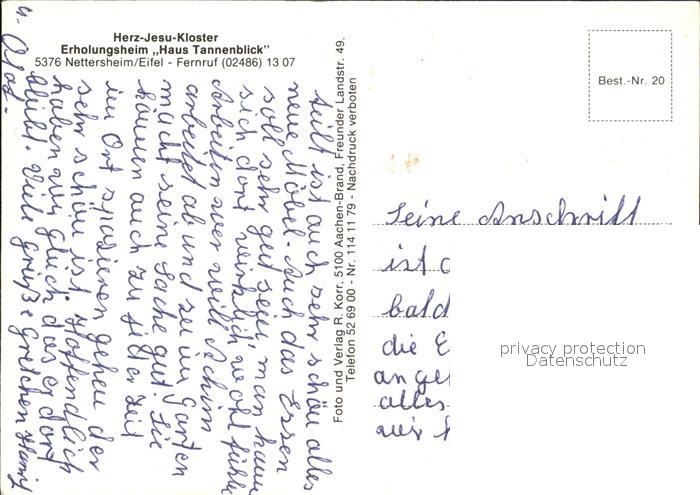 Herz-Jesu-Kloster
Erholungsheim „Haus Tannenblick"
5376 Nettersheim/Eifel - Fernruf (02486) 13 07
Best.-Nr. 20
teilt ist auch sehr schön alles
neue Möbel. Auch das Essen
soll sehr gut sein, man kann
sich dort wirklich wohl fühlen
Arbeiten wer will Achim
arbeitet ab und zu im Garten
macht seine Sache gut. Sie
können auch zu jeder Zeit
im Ort spazieren gehen der
sehr schön ist. Hoffendlich
haben wir Glück das er dort
bleibt. Viele Grüße Gretchen
u.
Foto und Verlag R. Korr, 5100 Aachen-Brand, Freunder Landstr. 49.
Telefon 52 69 00 - Nr. 114 11 79 - Nachdruck verboten
Seine Anschrift
ist
bald
die E
an ge
alles
privacy protection
Datenschutz